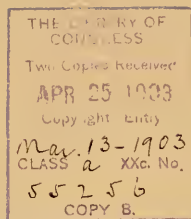 THE LIBRARY OF
CONGRESS
Two Copies Received
APR 25 1903
Copyright Entry
Mar. 13-1903
CLASS a XXc. No.
55256
COPY B.